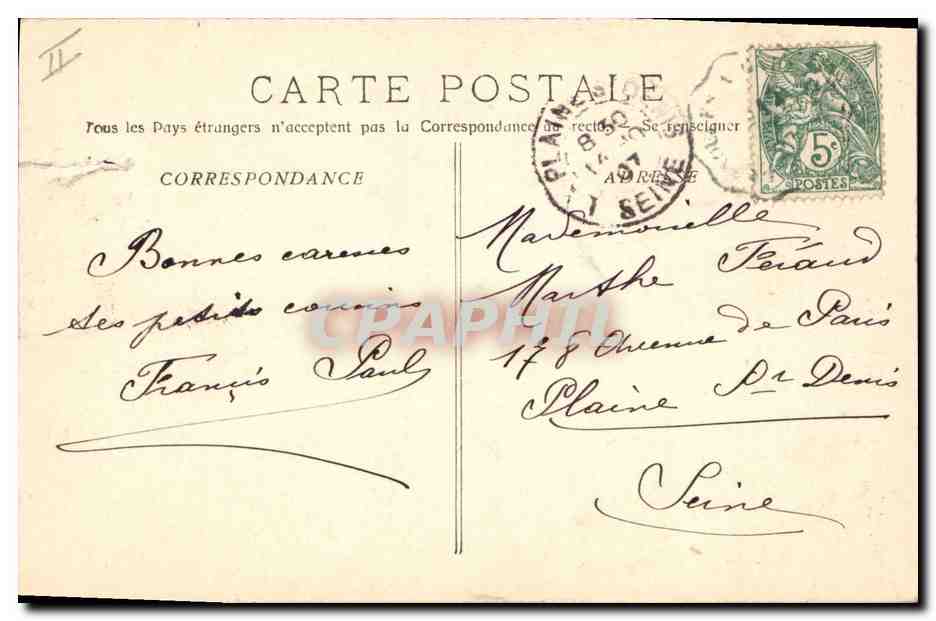 II
CARTE POSTALE
Tous les Pays étrangers n'acceptent pas la Correspondance au recto. Se renseigner
CORRESPONDANCE
ADRESSE
PLAINE ST DENIS
8 30
07
SEINE
5c
POSTES
Bonnes caresses
ses petits cousins
Francis Paul
Mademoiselle
Marthe Féraud
178 Avenue de Paris
Plaine St Denis
Seine
CPAPHIL